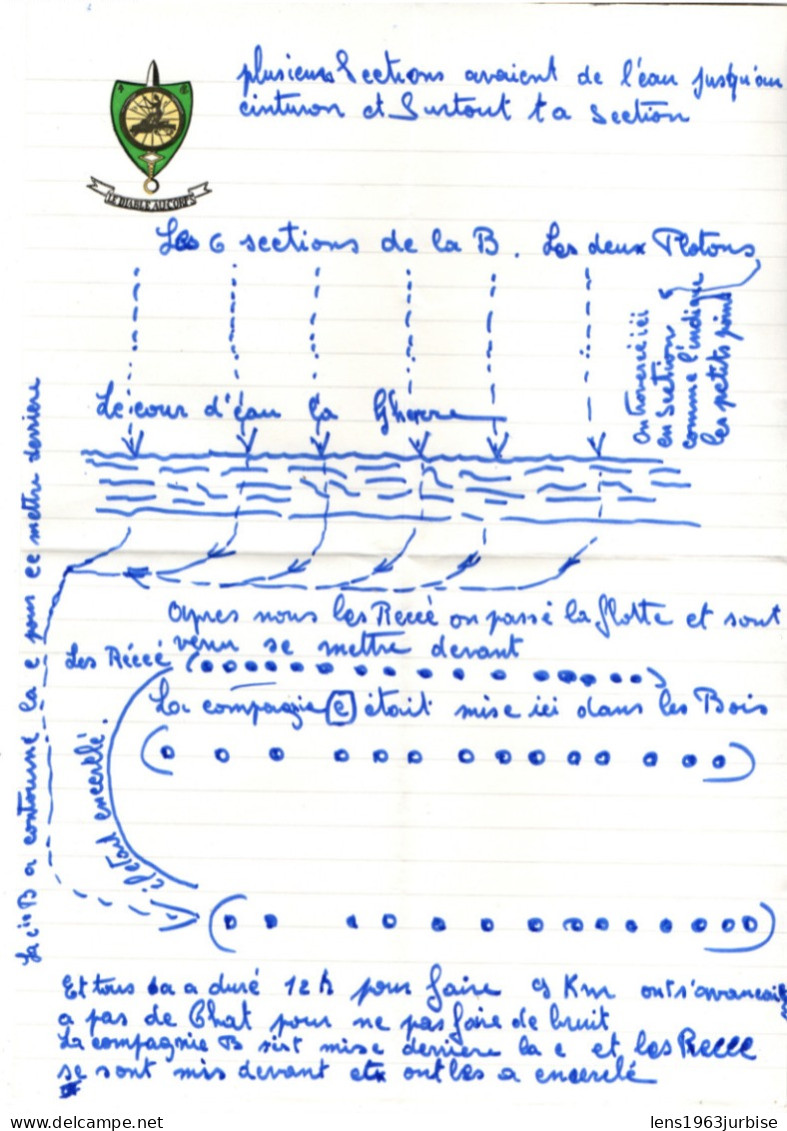 plusieurs Sections avaient de l'eau jusqu'au
cinturon et Surtout ta section
LE DIABLE AU CORPS
Les 6 sections de la B. Les deux Plotons
on traverse ici
en Section
comme l'indique
les petits poins
Le cour d'eau la
apres nous les Reccé on passé la flotte et sont
venu se mettre devant
Les Réccé
La compagnie C était mise ici dans les Bois
il etait encerclé.
La cie B a contourné la c pour ce mettre derriere
Et tous sa a duré 12 h pour faire 9 Km ont s'avancait
a pas de Chat pour ne pas faire de bruit
La compagnie B s'est mise derriere la c et les Recce
se sont mis devant et ont les a encerclé
lens1963jurbise